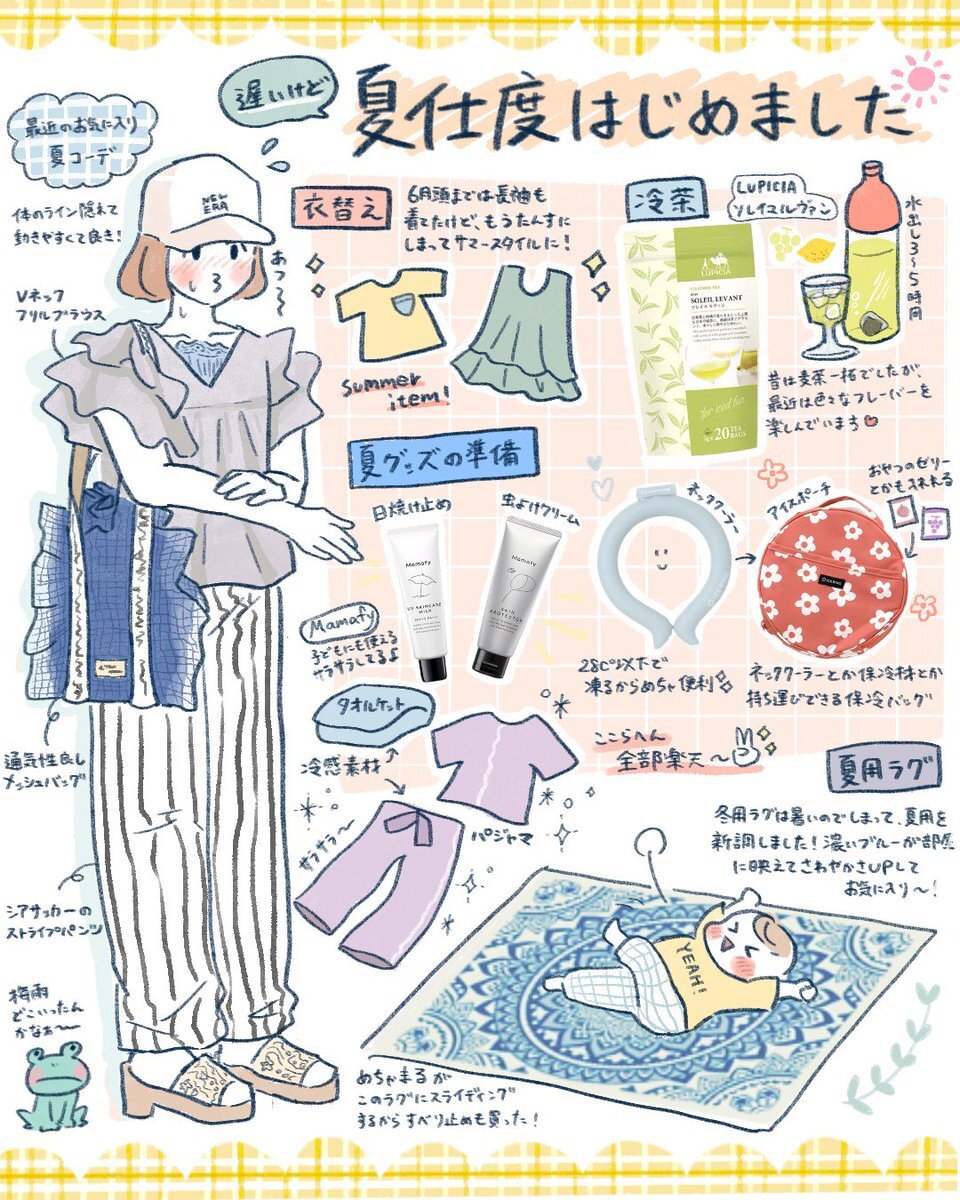 遅いけど
夏仕度はじめました
最近のお気に入り
夏コーデ
体のライン隠れて
動きやすくて良き!
Vネック
フリルブラウス
NEW
ERA
あつ〜
通気性良し
メッシュバッグ
シアサッカーの
ストライプパンツ
梅雨
どこいったん
かなぁ〜〜
衣替え
6月頭までは長袖も
着てたけど、もうたんすに
しまってサマースタイルに!
summer
item!
冷茶
LUPICIA
ソレイユルヴァン
水出し3〜5時間
LUPICIA
FLAVORED TEA
SOLEIL LEVANT
ソレイユ ルヴァン
for iced tea
5g×20 TEA
BAGS
昔は麦茶一択でしたが、
最近は色々なフレーバーを
楽しんでいます
夏グッズの準備
日焼け止め
虫よけクリーム
Mamafy
UV SKINCARE
MILK
Mamafy
SKIN
PROTECTOR
Mamafy
子どもにも使える
サラサラしてるよ
ネッククーラー
28℃以下で
凍るからめちゃ便利
アイスポーチ
おやつのゼリー
とかも入れれる
ネッククーラーとか保冷材とか
持ち運びできる保冷バッグ
ここらへん
全部楽天〜
タオルケット
冷感素材
サラサラ〜
パジャマ
夏用ラグ
冬用ラグは暑いのでしまって、夏用を
新調しました!濃いブルーが部屋
に映えてさわやかさUPして
お気に入り〜!
YEAH!
めちゃまるが
このラグにスライディング
するからすべり止めも買った!